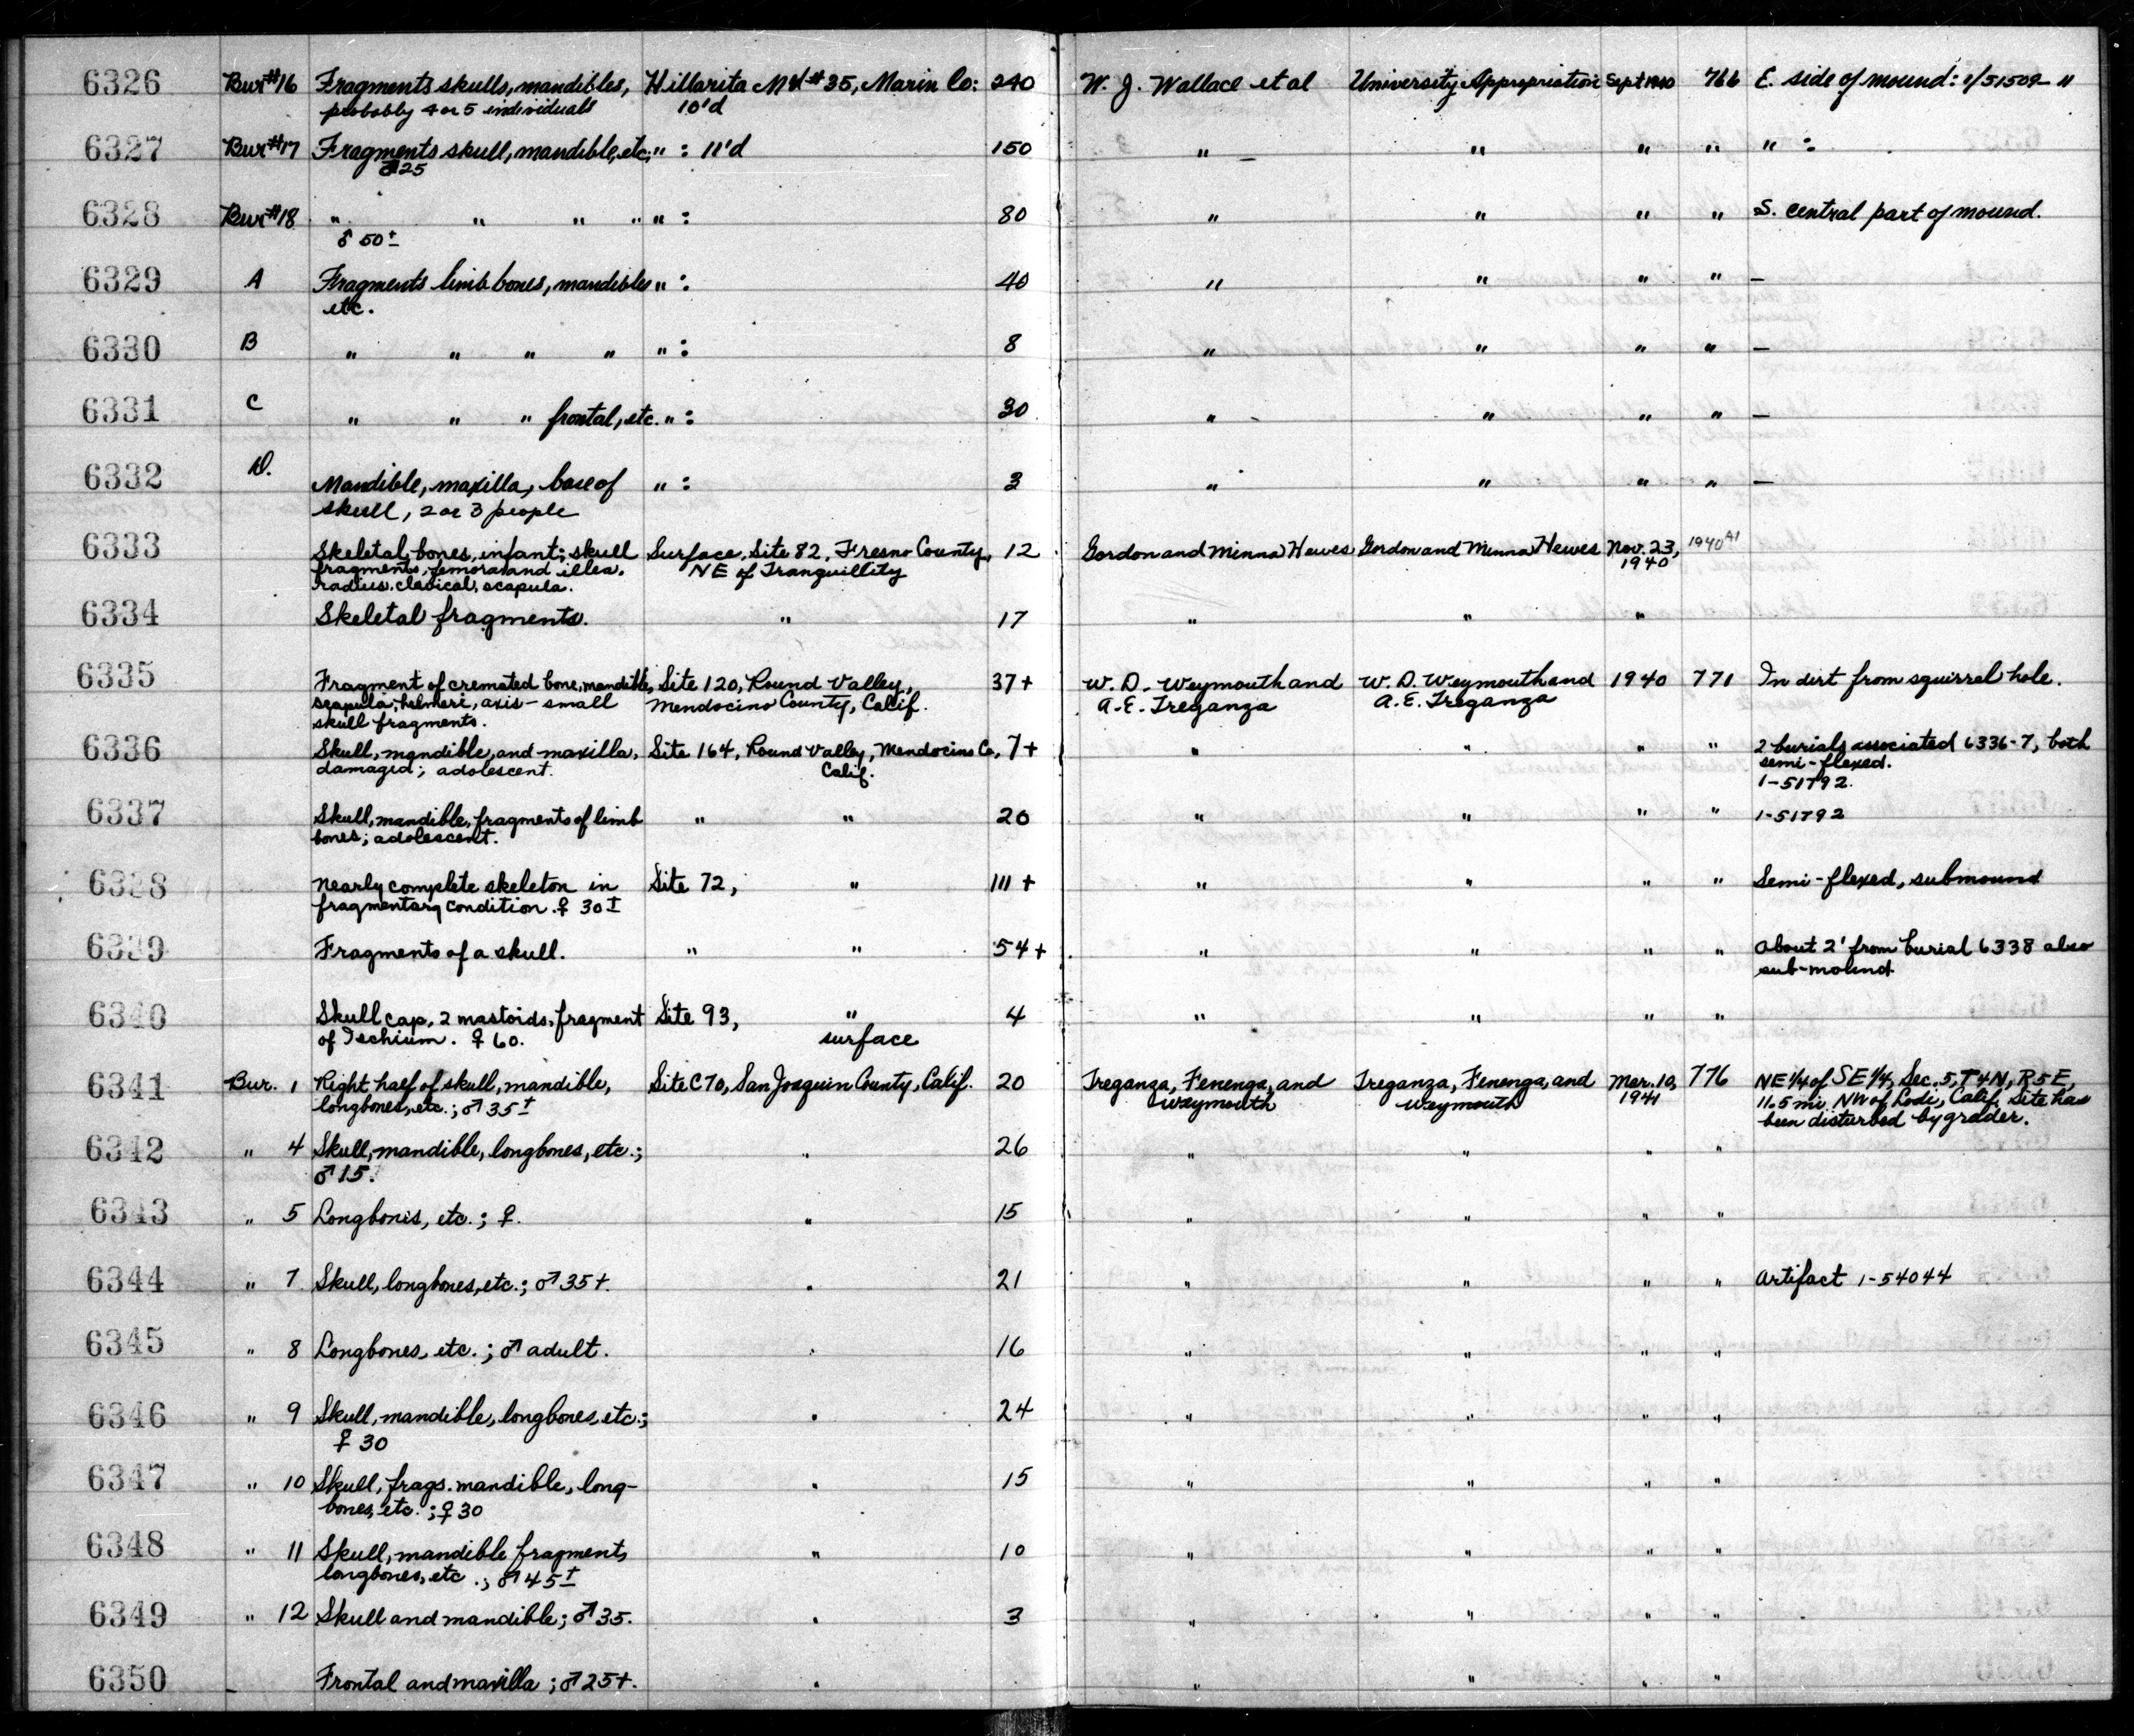 6326 Bur#16 Fragments skulls, mandibles, Hillarita Md #35, Marin Co: 240 W. J. Wallace et al University Appropriation Sept 1940 766 E. side of mound: 1/51509- "
probably 4 or 5 individuals 10'd
6327 Bur#17 Fragments skull, mandible, etc; " : 11'd 150 " " " " " :
♂ 25
6328 Bur#18 " " " " " : 80 " " " " S. central part of mound.
♂ 50±
6329 A Fragments limb bones, mandibles " : 40 " " " " —
etc.
6330 B " " " " " : 8 " " " " —
6331 C " " " frontal, etc. " : 30 " " " " —
6332 D. Mandible, maxilla, base of " : 3 " " " " —
skull, 2 or 3 people
6333 Skeletal bones, infant; skull Surface, Site 82, Fresno County, 12 Gordon and Minna Hewes Gordon and Minna Hewes Nov. 23, 1940 A1
fragments, femora and illea, NE of Tranquillity 1940
radius, clavical, scapula.
6334 Skeletal fragments. " 17 " " "
6335 Fragment of cremated bone, mandible, Site 120, Round Valley, 37+ W. D. Weymouth and W. D. Weymouth and 1940 771 In dirt from squirrel hole.
scapula, humeri, axis - small Mendocino County, Calif. A. E. Treganza A. E. Treganza
skull fragments.
6336 Skull, mandible, and maxilla, Site 164, Round Valley, Mendocino Co, 7+ " " " " 2 burials associated 6336-7, both
damaged; adolescent. Calif. semi-flexed.
1-51792.
6337 Skull, mandible, fragments of limb " " 20 " " " " 1-51792
bones; adolescent.
6338 Nearly complete skeleton in Site 72, " 111+ " " " " Semi-flexed, submound
fragmentary condition. ♀ 30±
6339 Fragments of a skull. " " 54+ " " " " About 2' from burial 6338 also
sub-mound
6340 Skull cap, 2 mastoids, fragment Site 93, " 4 " " " "
of Ischium. ♀ 60. surface
6341 Bur. 1 Right half of skull, mandible, Site C70, San Joaquin County, Calif. 20 Treganza, Fenenga, and Treganza, Fenenga, and Mar. 10, 776 NE 1/4 of SE 1/4, Sec. 5, T4N, R5E,
longbones, etc.; ♂ 35± Weymouth Weymouth 1941 11.5 mi NW of Lodi, Calif. Site has
been disturbed by grader.
6342 " 4 Skull, mandible, longbones, etc.; " 26 " " " "
♂ 15.
6343 " 5 Longbones, etc.; ♀. " 15 " " " "
6344 " 7 Skull, longbones, etc.; ♂ 35+. " 21 " " " " Artifact 1-54044
6345 " 8 Longbones, etc.; ♂ adult. " 16 " " " "
6346 " 9 Skull, mandible, longbones, etc.; " 24 " " " "
♀ 30
6347 " 10 Skull, frags. mandible, long- " 15 " " " "
bones, etc.; ♀ 30
6348 " 11 Skull, mandible fragments " 10 " " " "
longbones, etc.; ♂ 45±
6349 " 12 Skull and mandible; ♂ 35. " 3 " " " "
6350 Frontal and maxilla; ♂ 25+. " " " " "